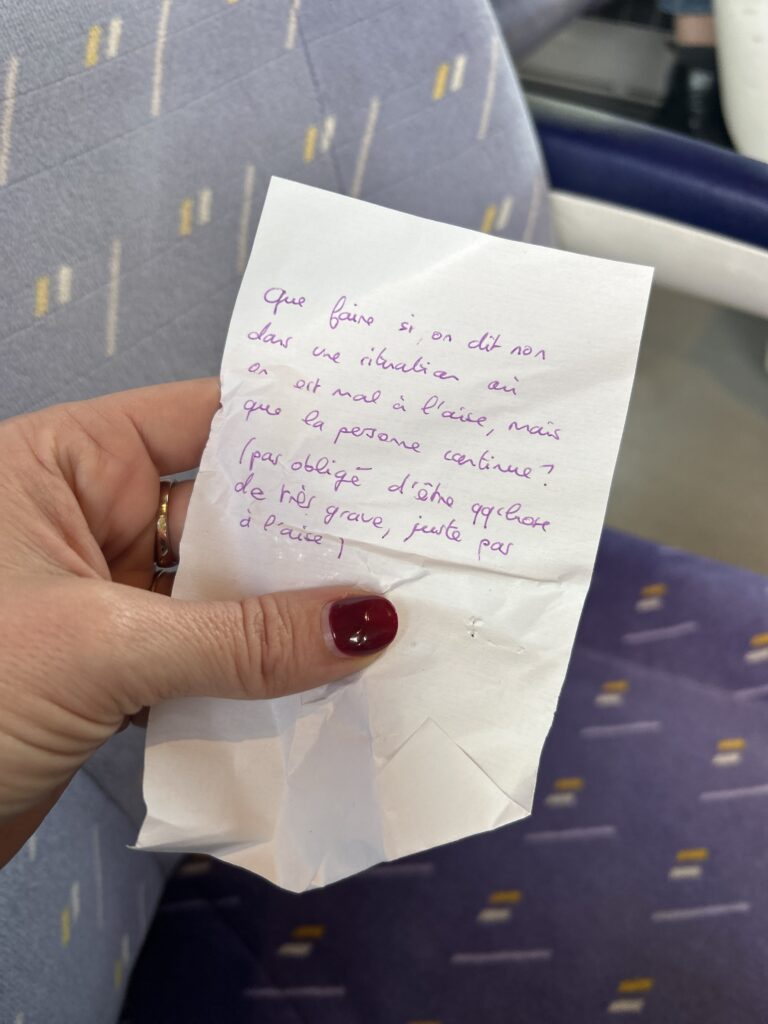 Que faire si, on dit non
dans une situation où
on est mal à l'aise, mais
que la personne continue ?
(pas obligé d'être qqchose
de très grave, juste pas
à l'aise)